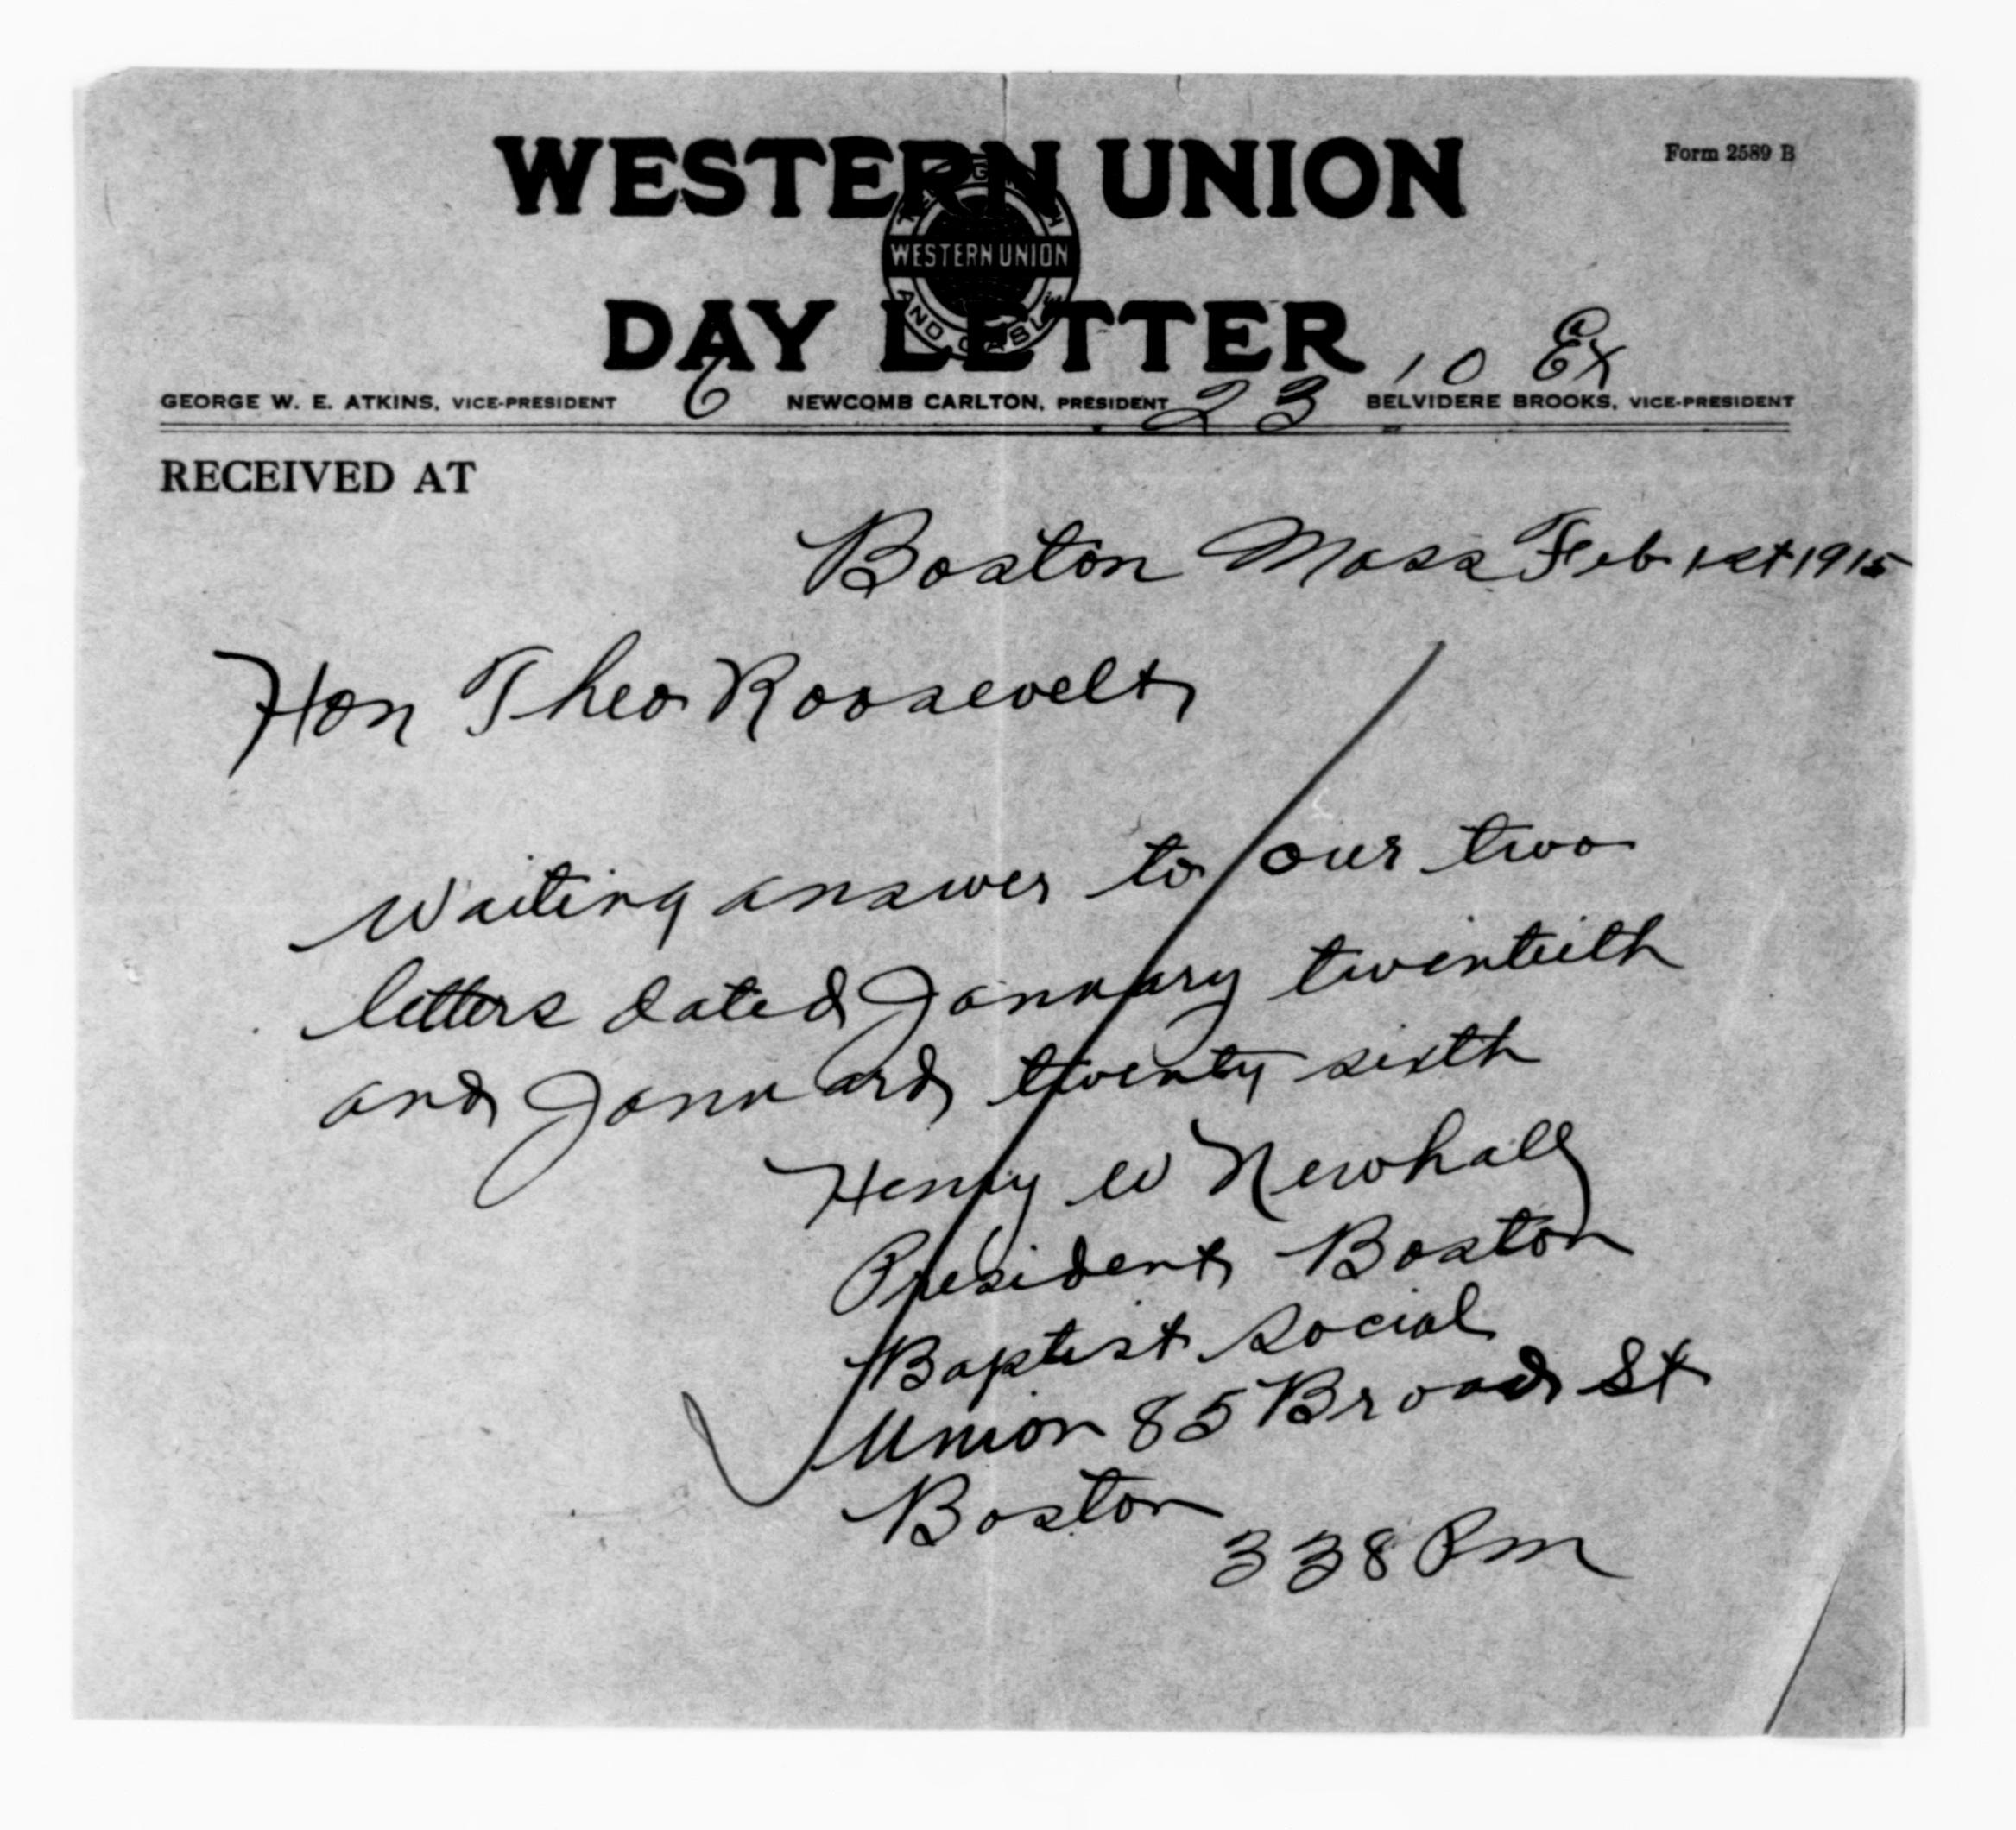 WESTERN UNION
Form 2589 B
TELEGRAPH AND CABLE
WESTERN UNION
DAY LETTER
6 23 10 Ex
GEORGE W. E. ATKINS, VICE-PRESIDENT NEWCOMB CARLTON, PRESIDENT BELVIDERE BROOKS, VICE-PRESIDENT
RECEIVED AT
Boston Mass Feb 1st 1915
Hon Theo Roosevelt
Waiting answer to our two
letters dated January twentieth
and January twenty sixth
Henry W Newhall
President Boston
Baptist Social
Union 85 Broad St
Boston
338 Pm